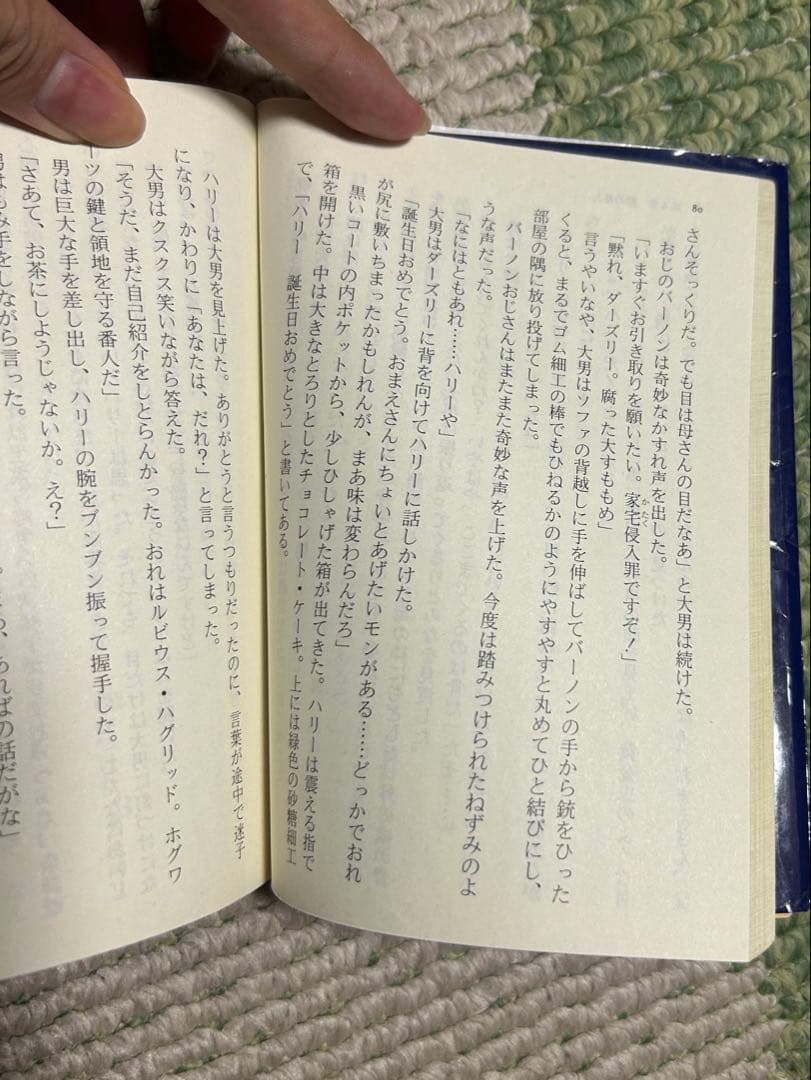 80
さんそっくりだ。でも目は母さんの目だなあ」と大男は続けた。
おじのバーノンは奇妙なかすれ声を出した。
「いますぐお引き取りを願いたい。家宅侵入罪ですぞ！」
かたく
「黙れ、ダーズリー。腐った大すももめ」
言うやいなや、大男はソファの背越しに手を伸ばしてバーノンの手から銃をひった
くると、まるでゴム細工の棒でもひねるかのようにやすやすと丸めてひと結びにし、
部屋の隅に放り投げてしまった。
バーノンおじさんはまたまた奇妙な声を上げた。今度は踏みつけられたねずみのよ
うな声だった。
「なにはともあれ……ハリーや」
大男はダーズリーに背を向けてハリーに話しかけた。
「誕生日おめでとう。おまえさんにちょいとあげたいモンがある……どっかでおれ
が尻に敷いちまったかもしれんが、まあ味は変わらんだろ」
黒いコートの内ポケットから、少しひしゃげた箱が出てきた。ハリーは震える指で
箱を開けた。中は大きなとろりとしたチョコレート・ケーキ。上には緑色の砂糖細工
で、「ハリー　誕生日おめでとう」と書いてある。
ハリーは大男を見上げた。ありがとうと言うつもりだったのに、言葉が途中で迷子
になり、かわりに「あなたは、だれ？」と言ってしまった。
大男はクスクス笑いながら答えた。
「そうだ、まだ自己紹介をしとらんかった。おれはルビウス・ハグリッド。ホグワ
ーツの鍵と領地を守る番人だ」
男は巨大な手を差し出し、ハリーの腕をブンブン振って握手した。
「さあて、お茶にしようじゃないか。え？」
男はもみ手をしながら言った。
あればの話だがな」